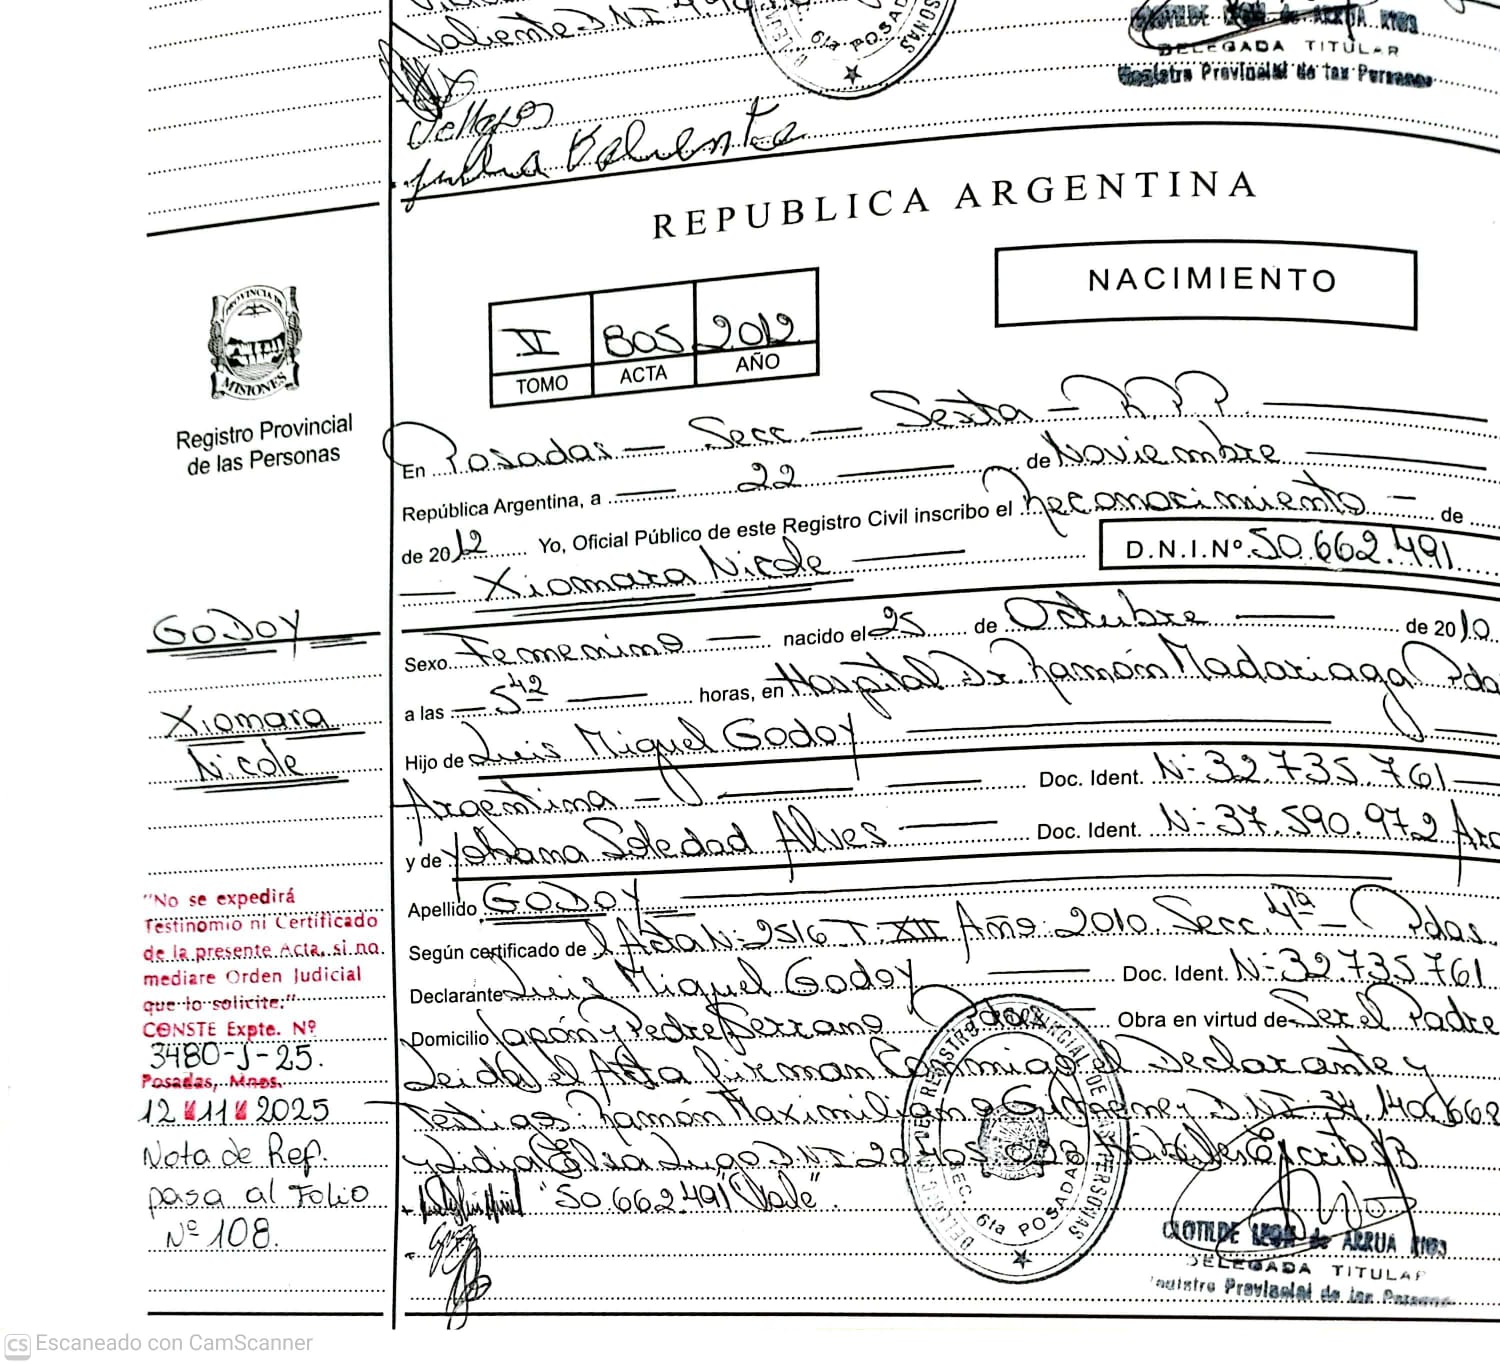 Valiente DNI
CLOTILDE LEON de ARRUA RIOS
DELEGADA TITULAR
Registro Provincial de las Personas
6ta POSADAS
Julia Valiente
REPUBLICA ARGENTINA
NACIMIENTO
V 805 2012
TOMO ACTA AÑO
PROVINCIA DE MISIONES
Registro Provincial
de las Personas
En Posadas — Secc. — Sexta — R.P.P.
República Argentina, a — 22 — de Noviembre
de 2012 Yo, Oficial Público de este Registro Civil inscribo el Reconocimiento — de
— Xiomara Nicole — D.N.I. Nº 50.662.491
GODOY
Xiomara
Nicole
Sexo Femenino — nacido el 25 de Octubre — de 2010
a las — 5 42 — horas, en Hospital Dr. Ramón Madariaga Pdas
Hijo de Luis Miguel Godoy —
Argentina — Doc. Ident. Nº 32.735.761 —
y de Yohana Soledad Alves — Doc. Ident. Nº 37.590.972 Arg
Apellido GODOY —
Según certificado de l Acta Nº 2516 T. XII Año: 2010. Secc. 4ta — Pdas.
Declarante Luis Miguel Godoy — Doc. Ident. Nº 32735761
Domicilio Japón y Pedro Serrano Pdas Obra en virtud de Ser el Padre
Leida el Acta firman Conmigo el Declarante y
Testigos: Ramón Maximiliano DNI 34.
y Lidia Elsa Lugo DNI
"50.662.491" Vale".
"No se expedirá
Testimomio ni Certificado
de la presente Acta, si no
mediare Orden Judicial
que lo solicite."
CONSTE Expte. Nº
3480-J-25.
Posadas, Mnes.
12 11 2025
Nota de Ref.
pasa al Folio
Nº 108.
DELEGACION DE REGISTRO PROVINCIAL DE LAS PERSONAS
SEC. 6ta POSADAS
CLOTILDE LEON de ARRUA RIOS
DELEGADA TITULAR
Registro Provincial de las Personas
CS Escaneado con CamScanner